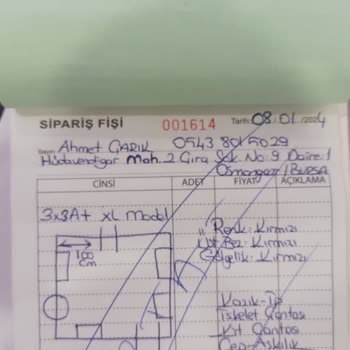 SİPARİŞ FİŞİ 001614 Tarih: 08/01/2024
Sayın Ahmet GARIK 0543 801 5029
Hüdavendigar Mah. 2 Gira Sok. No: 9 Daire: 1
Osmangazi / BURSA
CİNSİ ADET FİYAT AÇIKLAMA
3x3A+ XL Model
100 cm
Renk: Kırmızı
Üst Bez: Kırmızı
Gölgelik: Kırmızı
Kazık-İp
İskelet Çantası
Krt. Çantası
Cep-Askılık